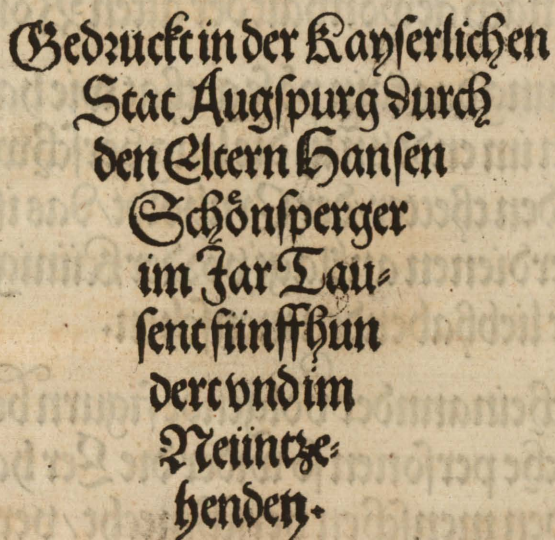 Gedruckt in der Kayserlichen
Stat Augspurg durch
den Eltern Hansen
Schoͤnsperger
im Jar Tau⸗
sent fünffhun
dert vnd im
Neüntze⸗
henden.